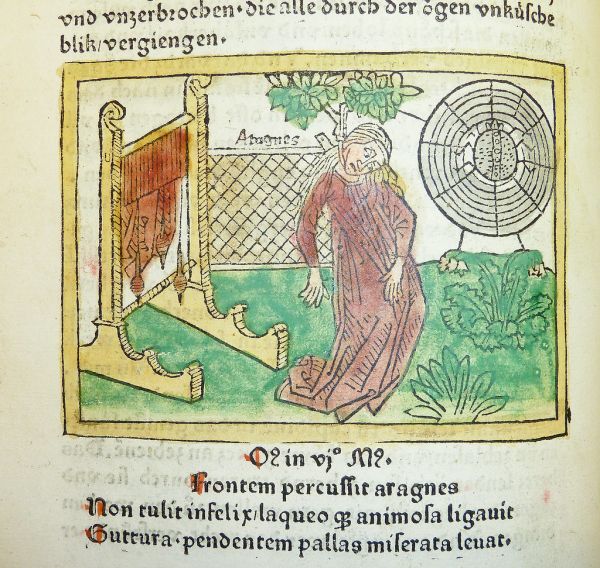 und unzerbrochen. die alle durch der ögen unkůsche
blik/vergiengen.
Aragnes
O℞ in vjº M℞.
Frontem percussit aragnes
Non tulit infelix/laqueo qȝ animosa ligauit
Guttura. pendentem pallas miserata leuat.